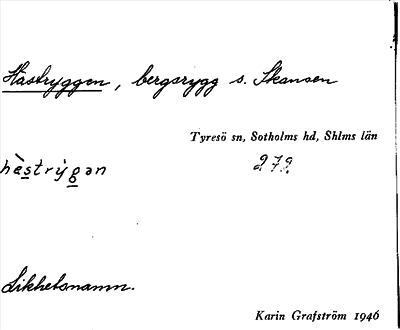 Hästryggen, bergsrygg s. Skansen
Tyresö sn, Sotholms hd, Shlms län
hà̀strỳgən 279.
Likhetsnamn.
Karin Grafström 1946